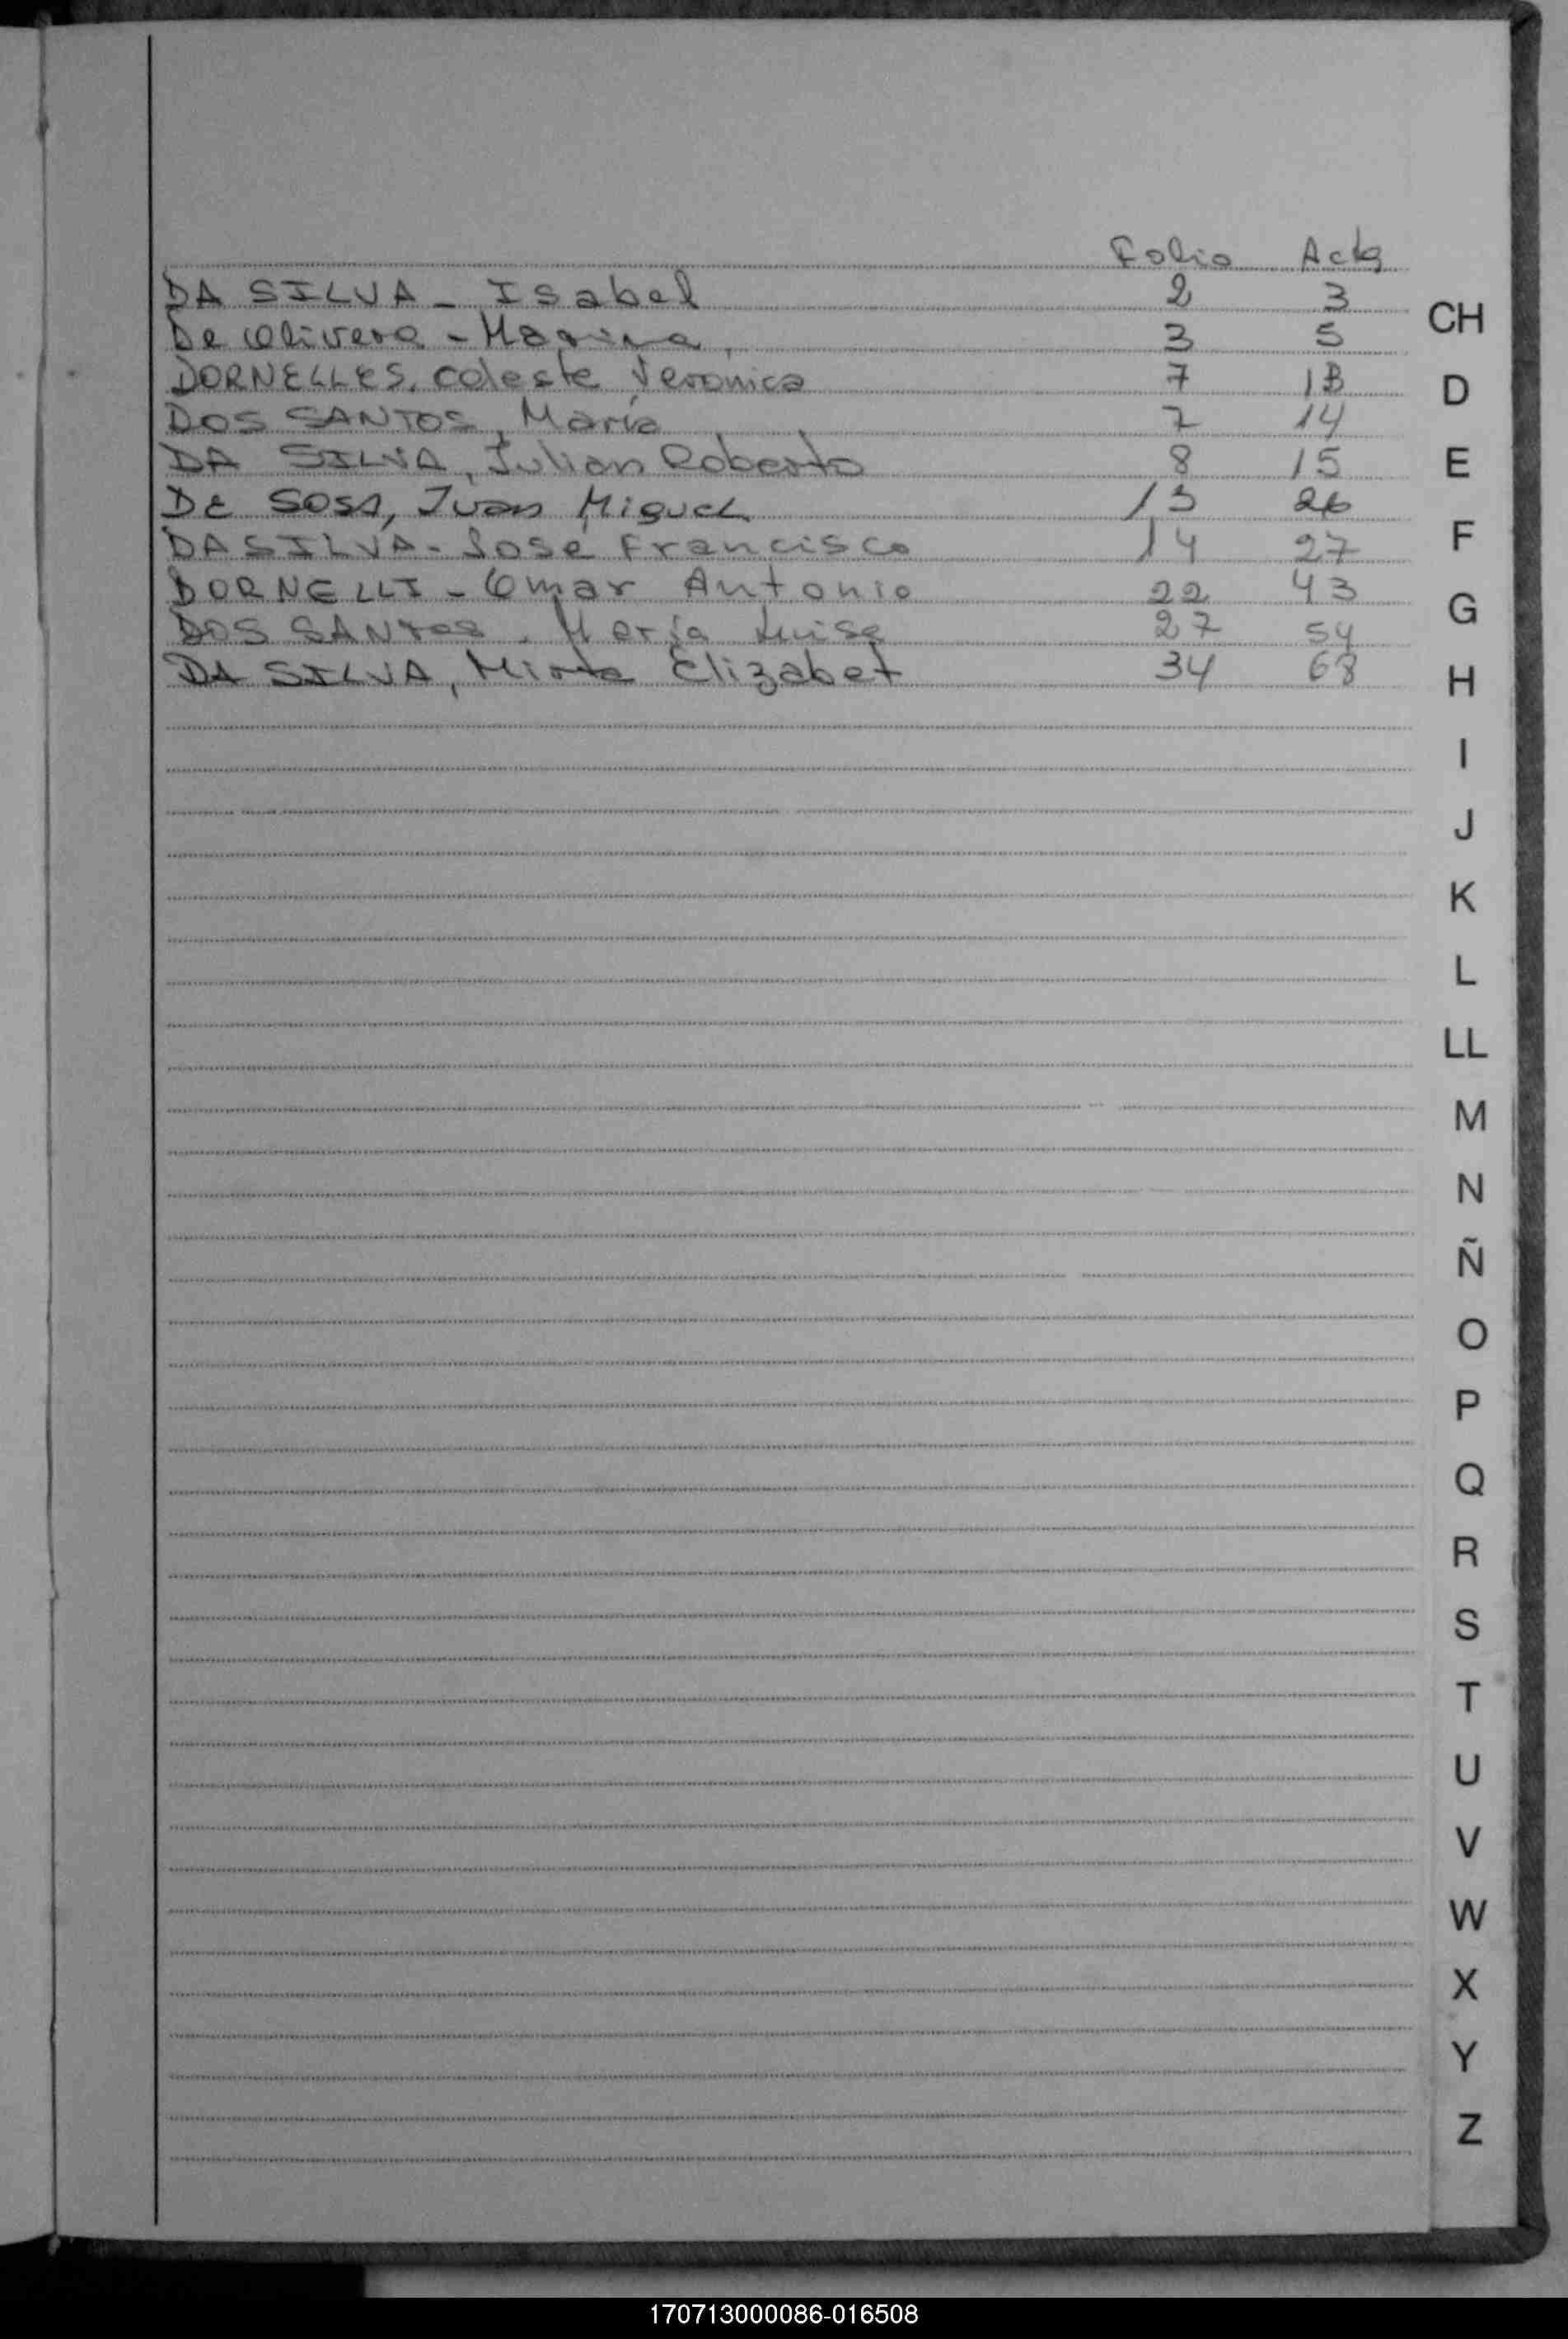 Folio Acta
DA SILVA - Isabel 2 3
De Olivera - Marina, 3 5
DORNELLES, Celeste Veronica 7 13
DOS SANTOS, María 7 14
DA SILVA, Julian Roberto 8 15
DE SOSA, Juan Miguel 13 26
DA SILVA - José Francisco 14 27
DORNELLI - Omar Antonio 22 43
DOS SANTOS, María Luisa 27 54
DA SILVA, Mirta Elizabet 34 68
CH
D
E
F
G
H
I
J
K
L
LL
M
N
Ñ
O
P
Q
R
S
T
U
V
W
X
Y
Z
170713000086-016508